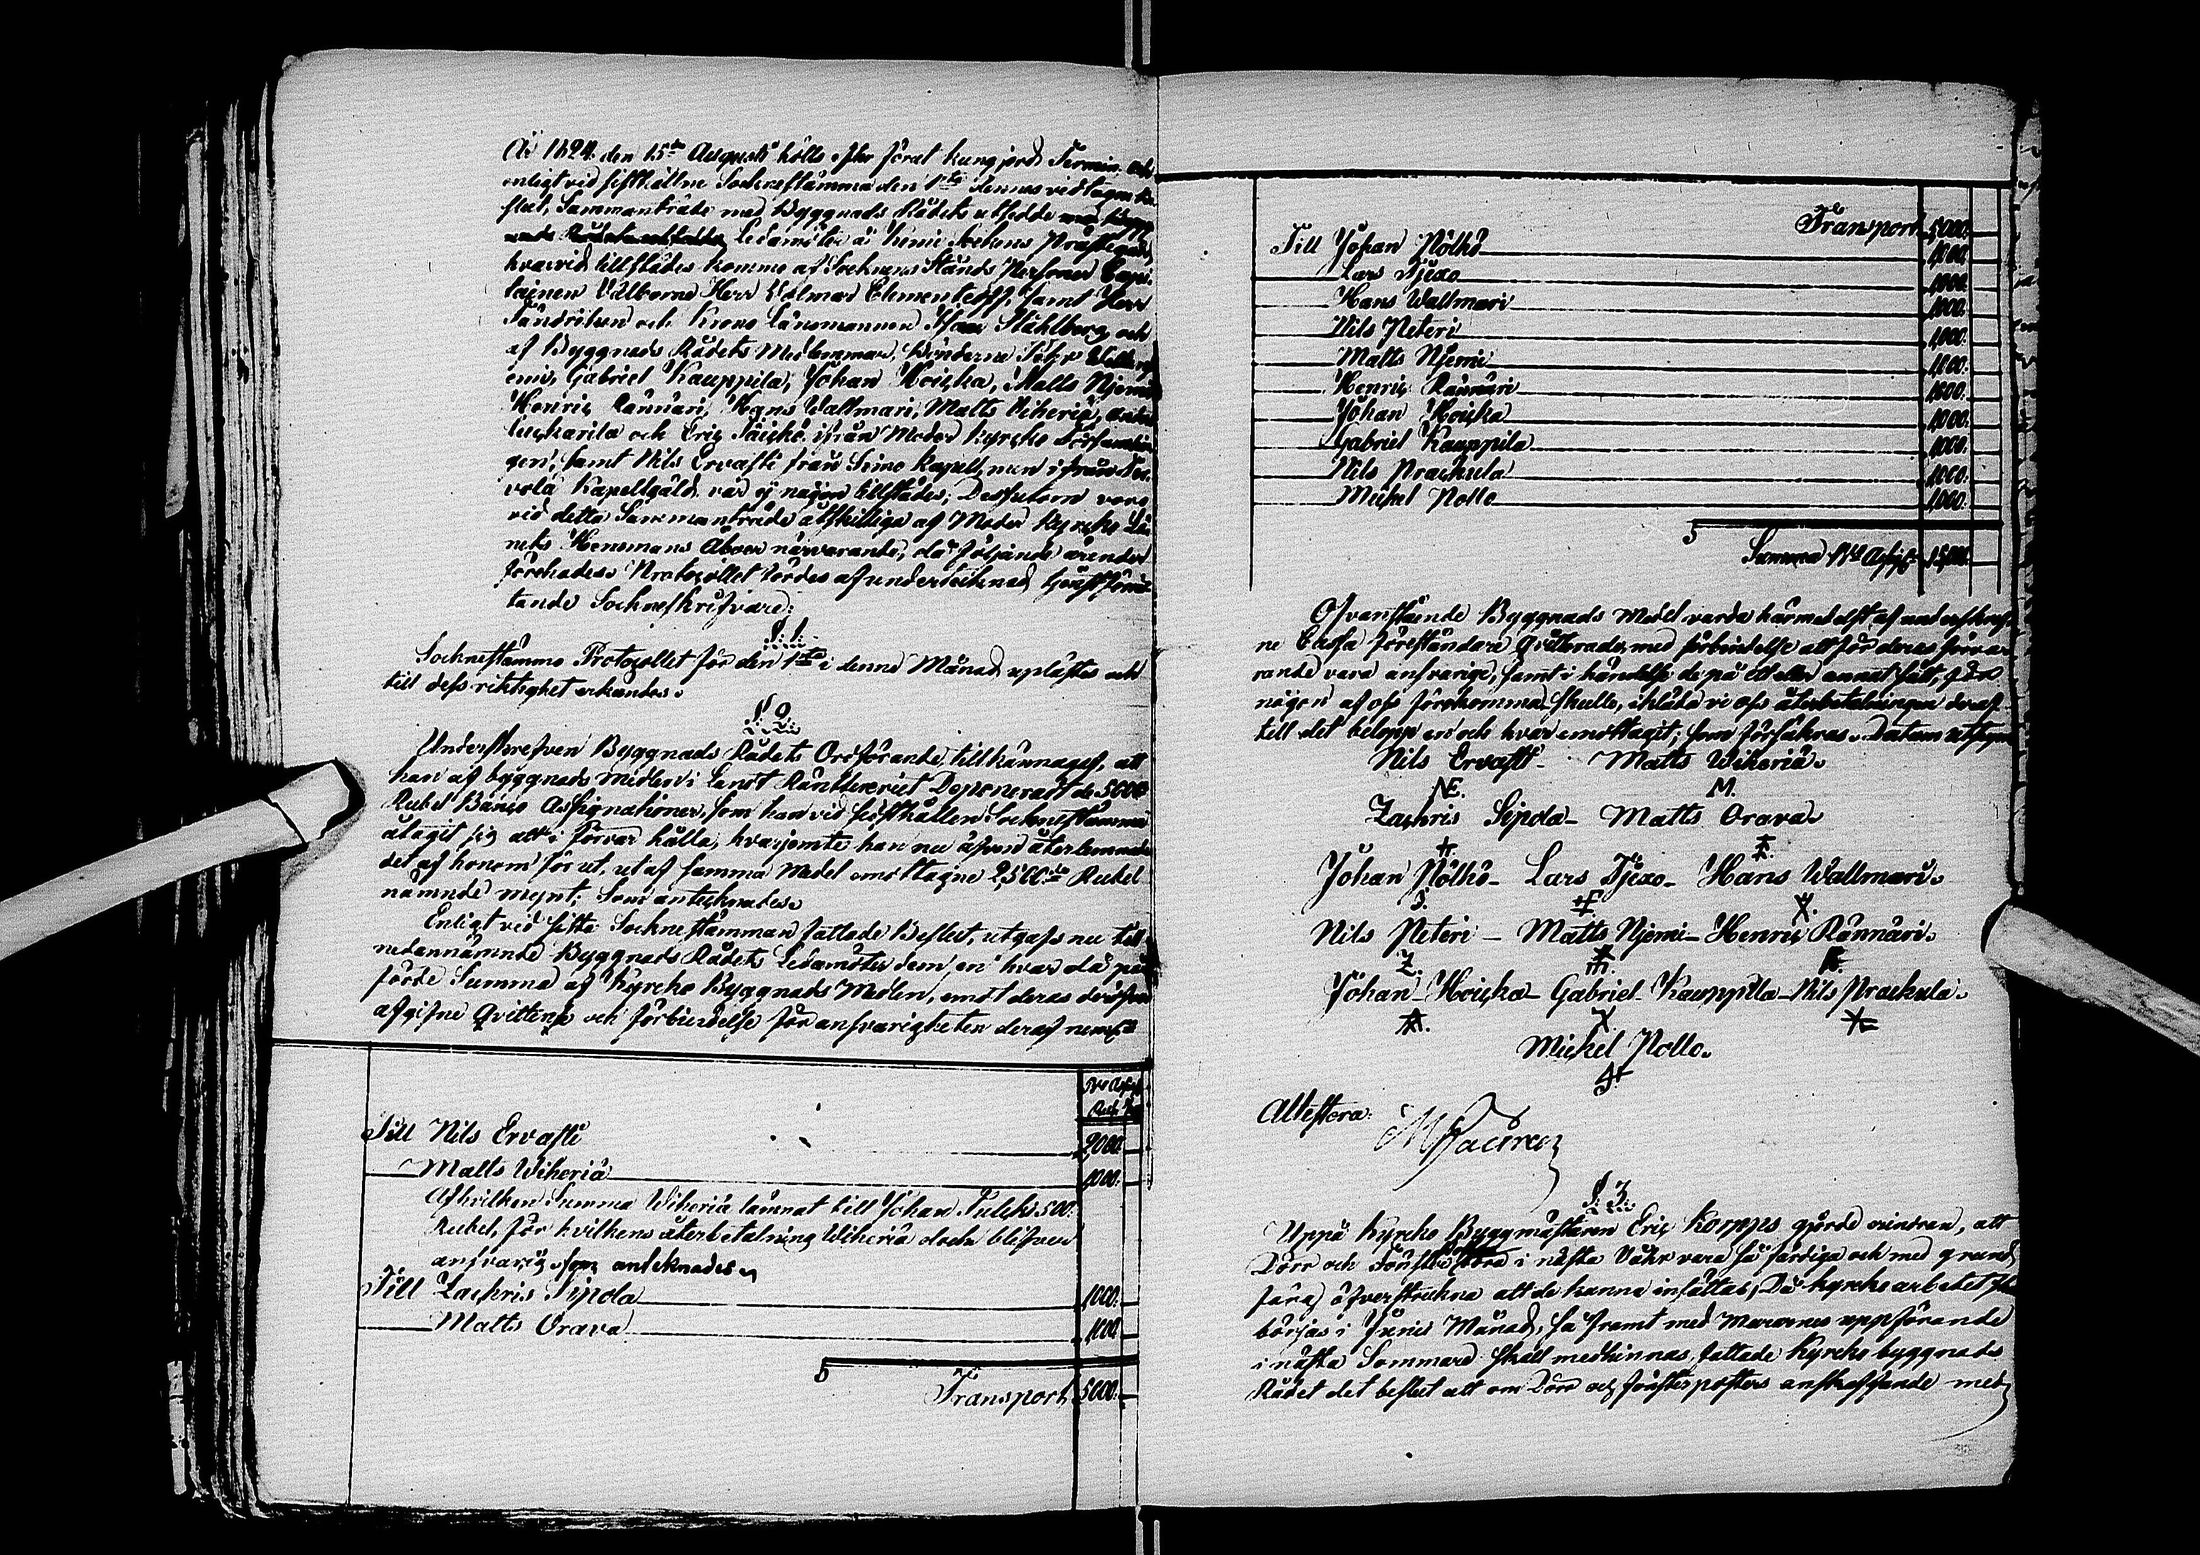 År 1824 den 15de Augusti hölls efter förut kungjord Termin och
enligt vid sisthållne Sockneståmma den 1sta dennes vidtagen Be-
slut, Sammanträde med Byggnads Rådets utsedde
Ledamöter i Kemi Sockens Prästegård,
hvarvid tillstädes kommo af Socknens Stånds Personer Capi-
tainen Välborne Herr Volmar Clementeoff, samt Herr
Ländriken och Krono Länsmannen Isac Ståhlberg, och
af Byggnads Rådets Medlemmar, Bönderne Petter
Gabriel Kauppila, Johan Hoicka, Matts Njemi
Henric Rännäri, Hans Wallmari, Matts Wiheriä,
och Eric ifrån Moder Kyrcko Församlin-
gen, samt Nils Ervasti från Simo Kapell, men ifrån Ter-
vola Kapellgäld var ej någon tillstädes; Dessutom voro
vid detta Sammanträde åtskillige af Moder Kyrcko Lä-
nets Hemmans Åboer närvarande, då följande ärender
förehades. Protocollet fördes af undertecknad
tände Sockneskrifvare:
§. 1.
Sockneståmmo Protocollet för den 1sta i denne Månad uplästes och
till dess riktighet erkändes.
§. 2.
Underskrefven Byggnads Rådets Ordförande tillkännagaf, att
han af byggnads medlen i Länst Ränteriet Deponerat de 5000
Rubel Banco Assignationer, som han vid sisthållen Sockneståmma
åtagit sig att i förvar hålla, hvarjemte han nu äfven återlemnade
det af honom förut, utaf samma Medel emottagne 2,500de Rubel
nämnde mynt; Som antecknades.
Enligt vid sista Socknestämman fattade Beslut, utgafs nu till
nedannämnde Byggnads Rådets Ledamöter dem en hvar då på
förde Summa af Kyrcko Byggnads Medlen, emot deras deröfver
afgifne Qvittens och förbindelse för ansvarigheten deraf neml:
Till Nils Ervasti 2000.
Matts Wiheriä 1000.
Af hvilken Summa Wiheriä lämnat till Johan 500.
Rubel, för hvilkens återbetalning Wiheriä dock blifver
ansvarig, som antecknades.
Till Zachris Sipola 1000.
Matts Orava 1000.
Transport 5000.
Transport 5,000.
Till Johan Pölhö 1,000.
Lars Tjexo 1,000.
Hans Wallmari 1,000.
Nils Peteri 1,000.
Matts Njemi 1,000.
Henric Rännäri 1,000.
Johan Hoicka 1,000.
Gabriel Kauppila 1,000.
Nils Prackula 1,000.
Michel Pollo 1,000.
Summa 15,000.
Ofvanstående Byggnads Medel varda härmedelst af underskref-
ne Cassa föreståndare Qvitterade, med förbindelse att för deras förva-
rande vara ansvarige, samt i händelse de på ett eller annat sätt, från
någon af oss förekomma skulle, ikläda vi oss återbetalningen deraf
till det belopp en och hvar emottagit; som försäkras. Datum utsupra
Nils Ervasti - Matts Wiheriä.
NE. M.
Zachris Sipola - Matts Orava.
Johan Pölhö - Lars Tjexo - Hans Wallmari.
Nils Peteri - Matts Njemi - Henric Rännäri.
Johan Hoicka - Gabriel Kauppila - Nils Prackula.
Michel Pollo.
Attestera:
§. 3.
Uppå Kyrcko Byggmästaren Eric Koppes gjorde erindran, att
Dörr och Fönster i nästa Vår vara så färdiga och med grund
färg öfverstrukna att de kunna insättas, Då Kyrcko arbetet
börjas i Junii Månad, så framt med Murarnes uppförande
i nästa Sommar skall medhinnas, fattade Kyrcko byggnads
Rådet det beslut att om Dörr och fönsterposters anskaffande med